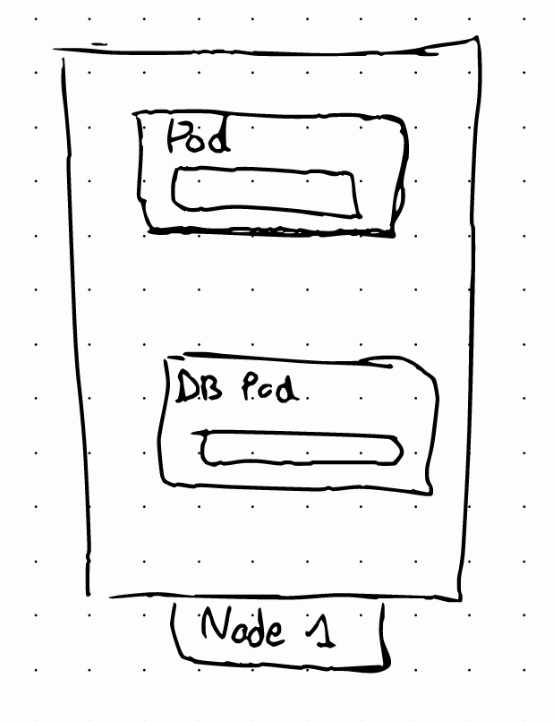 Pod
DB Pod
Node 1